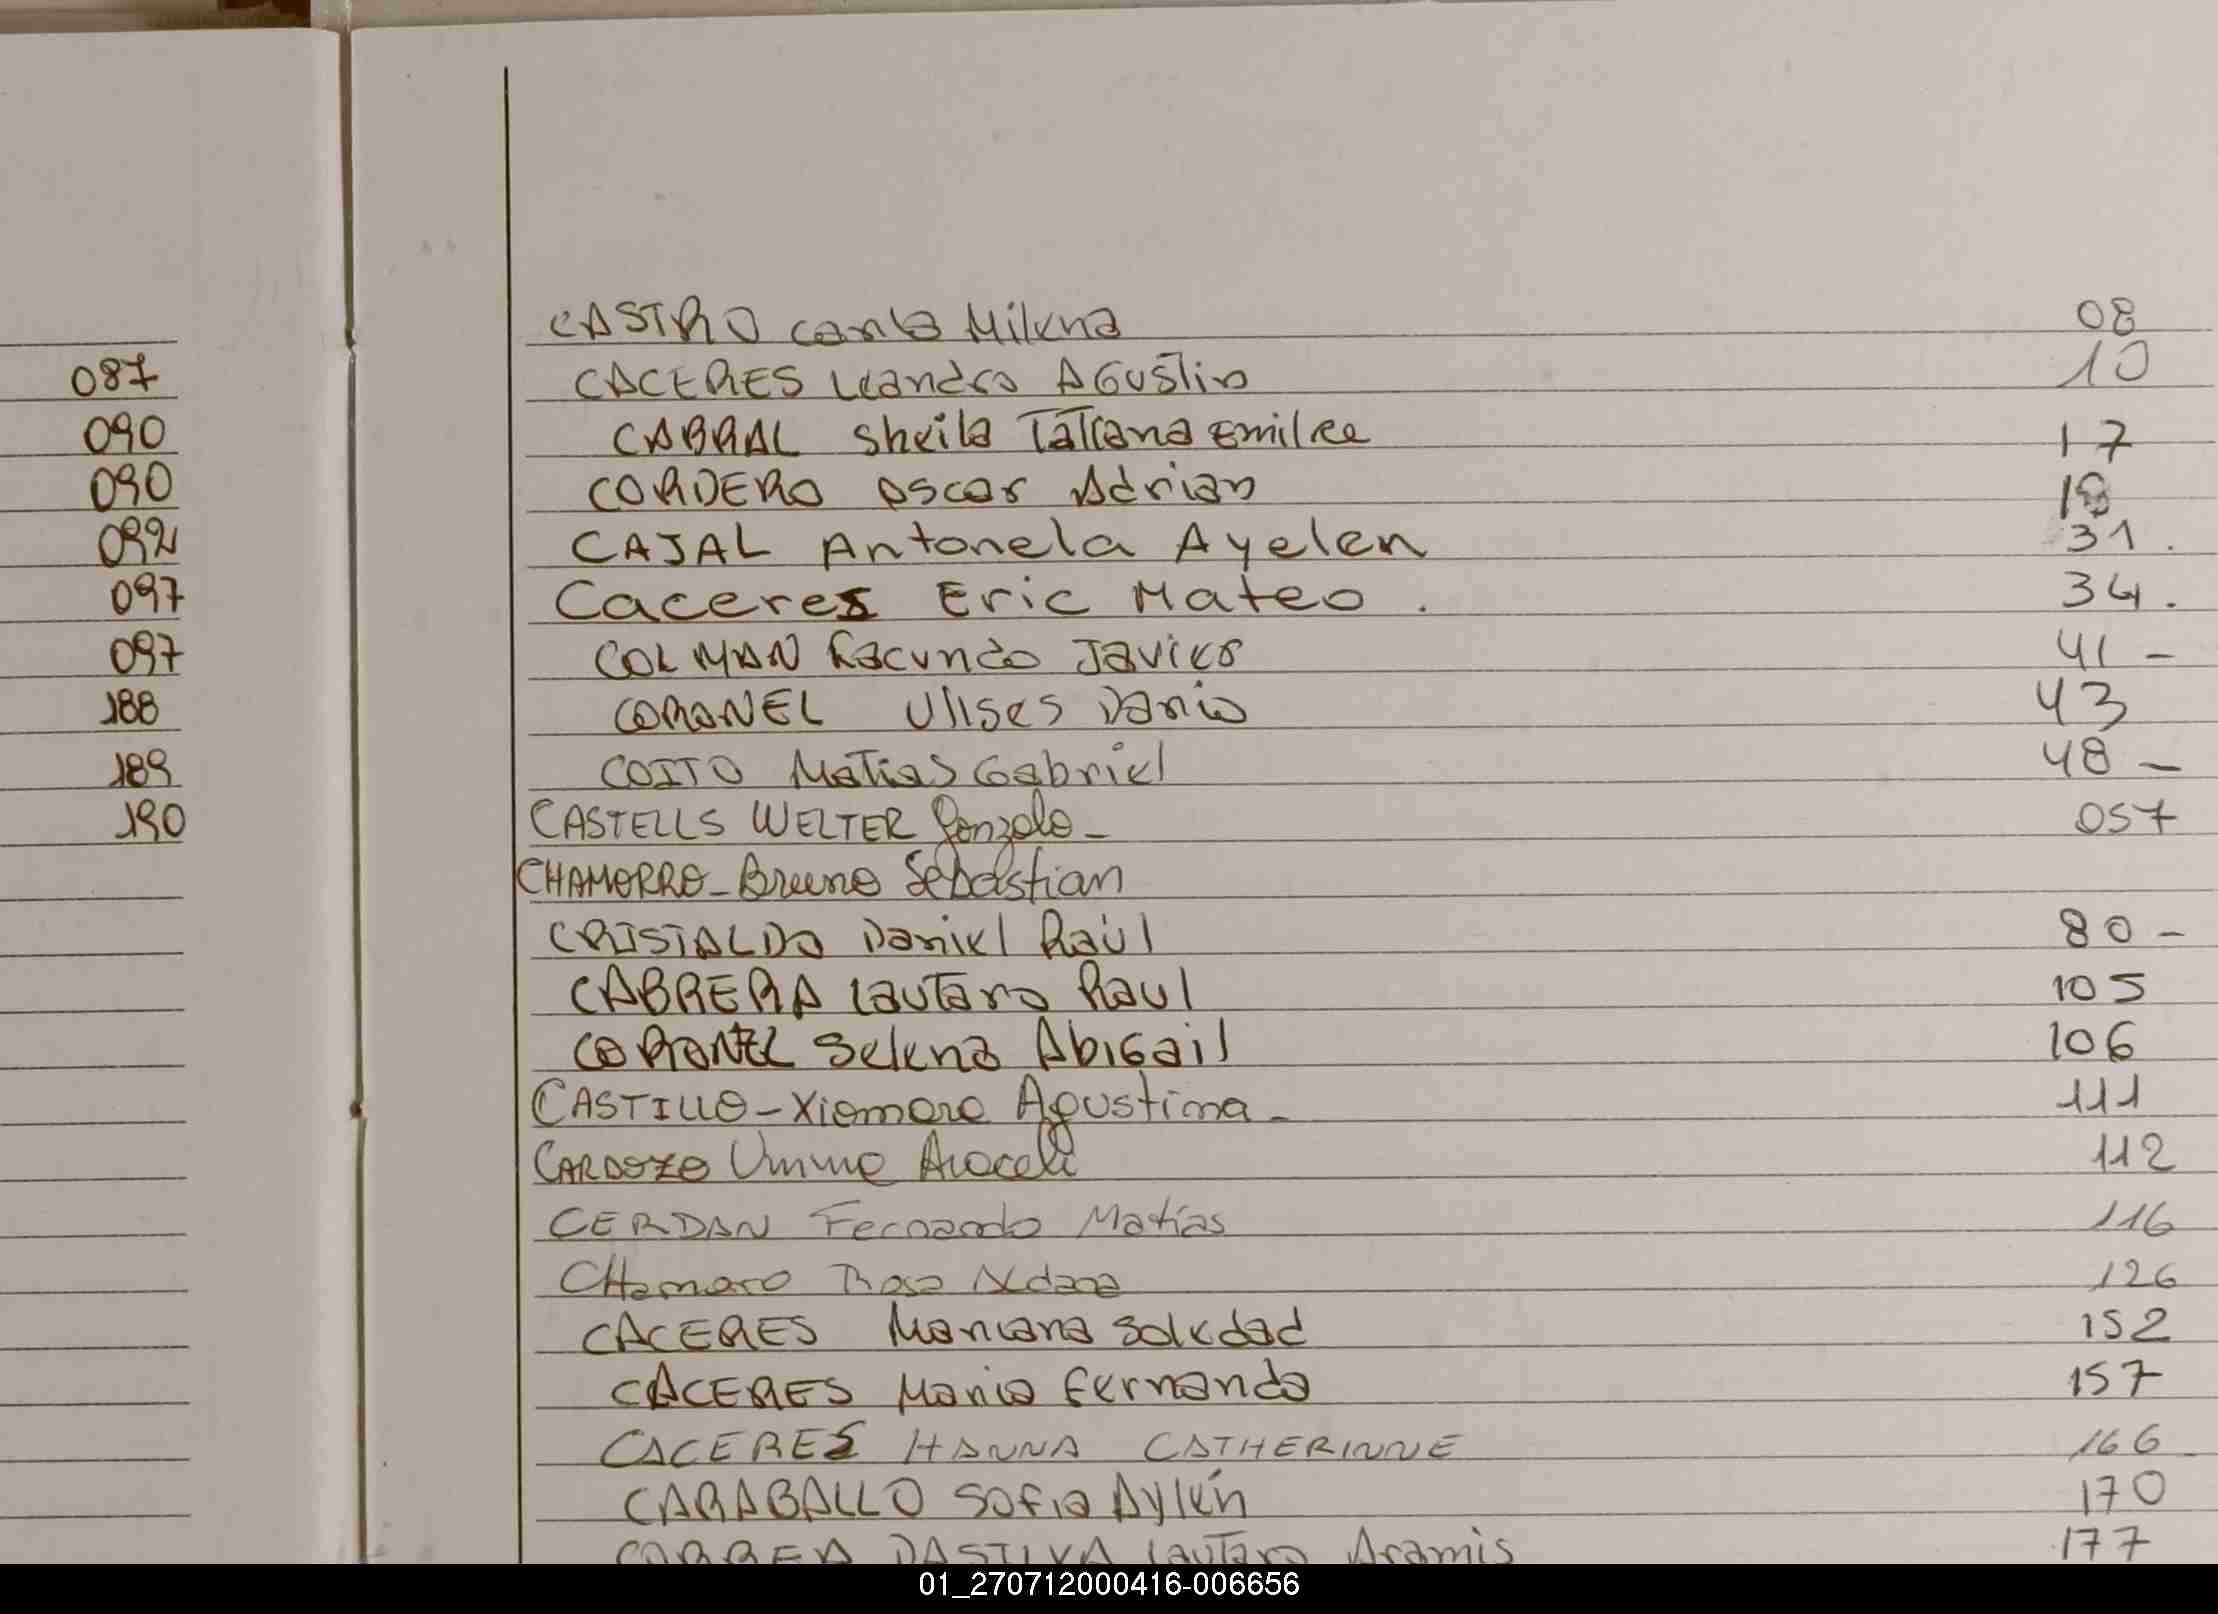 087
090
090
092
097
097
188
189
190
CASTRO Carla Milena 08
CACERES Leandro Agustin 10
CABRAL Sheila Tatiana Emilce 17
CORDERO Oscar Adrian 18
CAJAL Antonela Ayelen 31.
Caceres Eric Mateo. 34.
COLMAN Facundo Javier 41 -
CORONEL Ulises Dario 43
COITO Matias Gabriel 48 -
CASTELLS WELTER Gonzalo - 057
CHAMORRO - Bruno Sebastian
CRISTALDO Daniel Raúl 80 -
CABRERA Lautaro Raul 105
CORONEL Selena Abigail 106
CASTILLO - Xiomara Agustina - 111
CARDOZO Araceli 112
CERDAN Fernando Matías 116
CHamaro Rosa Aldana 126
CACERES Mariana Soledad 152
CACERES Maria Fernanda 157
CACERES HANNA CATHERINNE 166
CARABALLO Sofia Aylén 170
CORREA DASILVA Lautaro Aramis 177
01_270712000416-006656